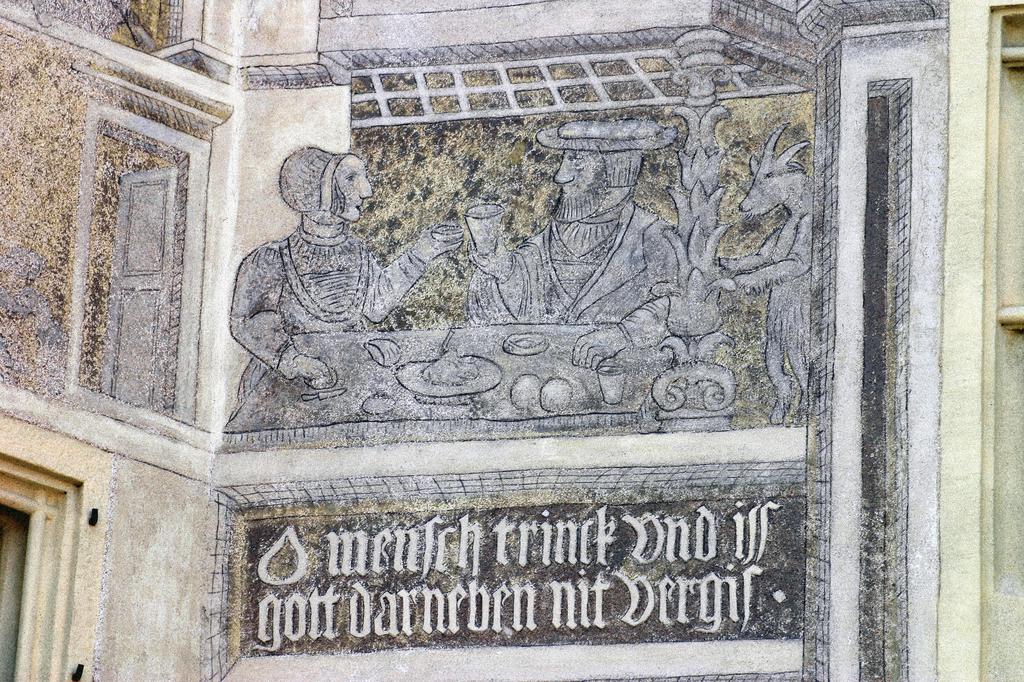 O mensch trinck vnd iss
gott darneben nit vergis.